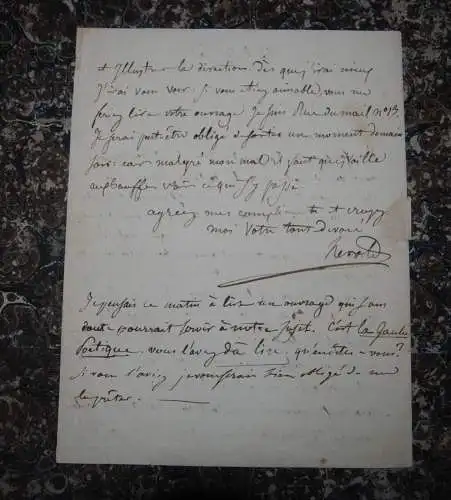 et Illustrer la direction. Dès que j'irai mieux
j'irai vous voir si vous étiez aimable, vous me
feriez lire votre ouvrage je suis Rue du mail n° 13.
Je serai peut-être obligé de sortir un moment demain
soir car malgré mon mal il faut que j'aille
voir ce qui s'y passe
agréez mes compliments et croyez
moi Votre tout dévoué
Revoil
Je pensais ce matin à lire un ouvrage qui sans
doute pourrait servir à notre sujet. C'est la Gaule
Poetique. vous l'avez dû lire, qu'en dites-vous?
si vous l'aviez je vous serais bien obligé de me
le prêter.